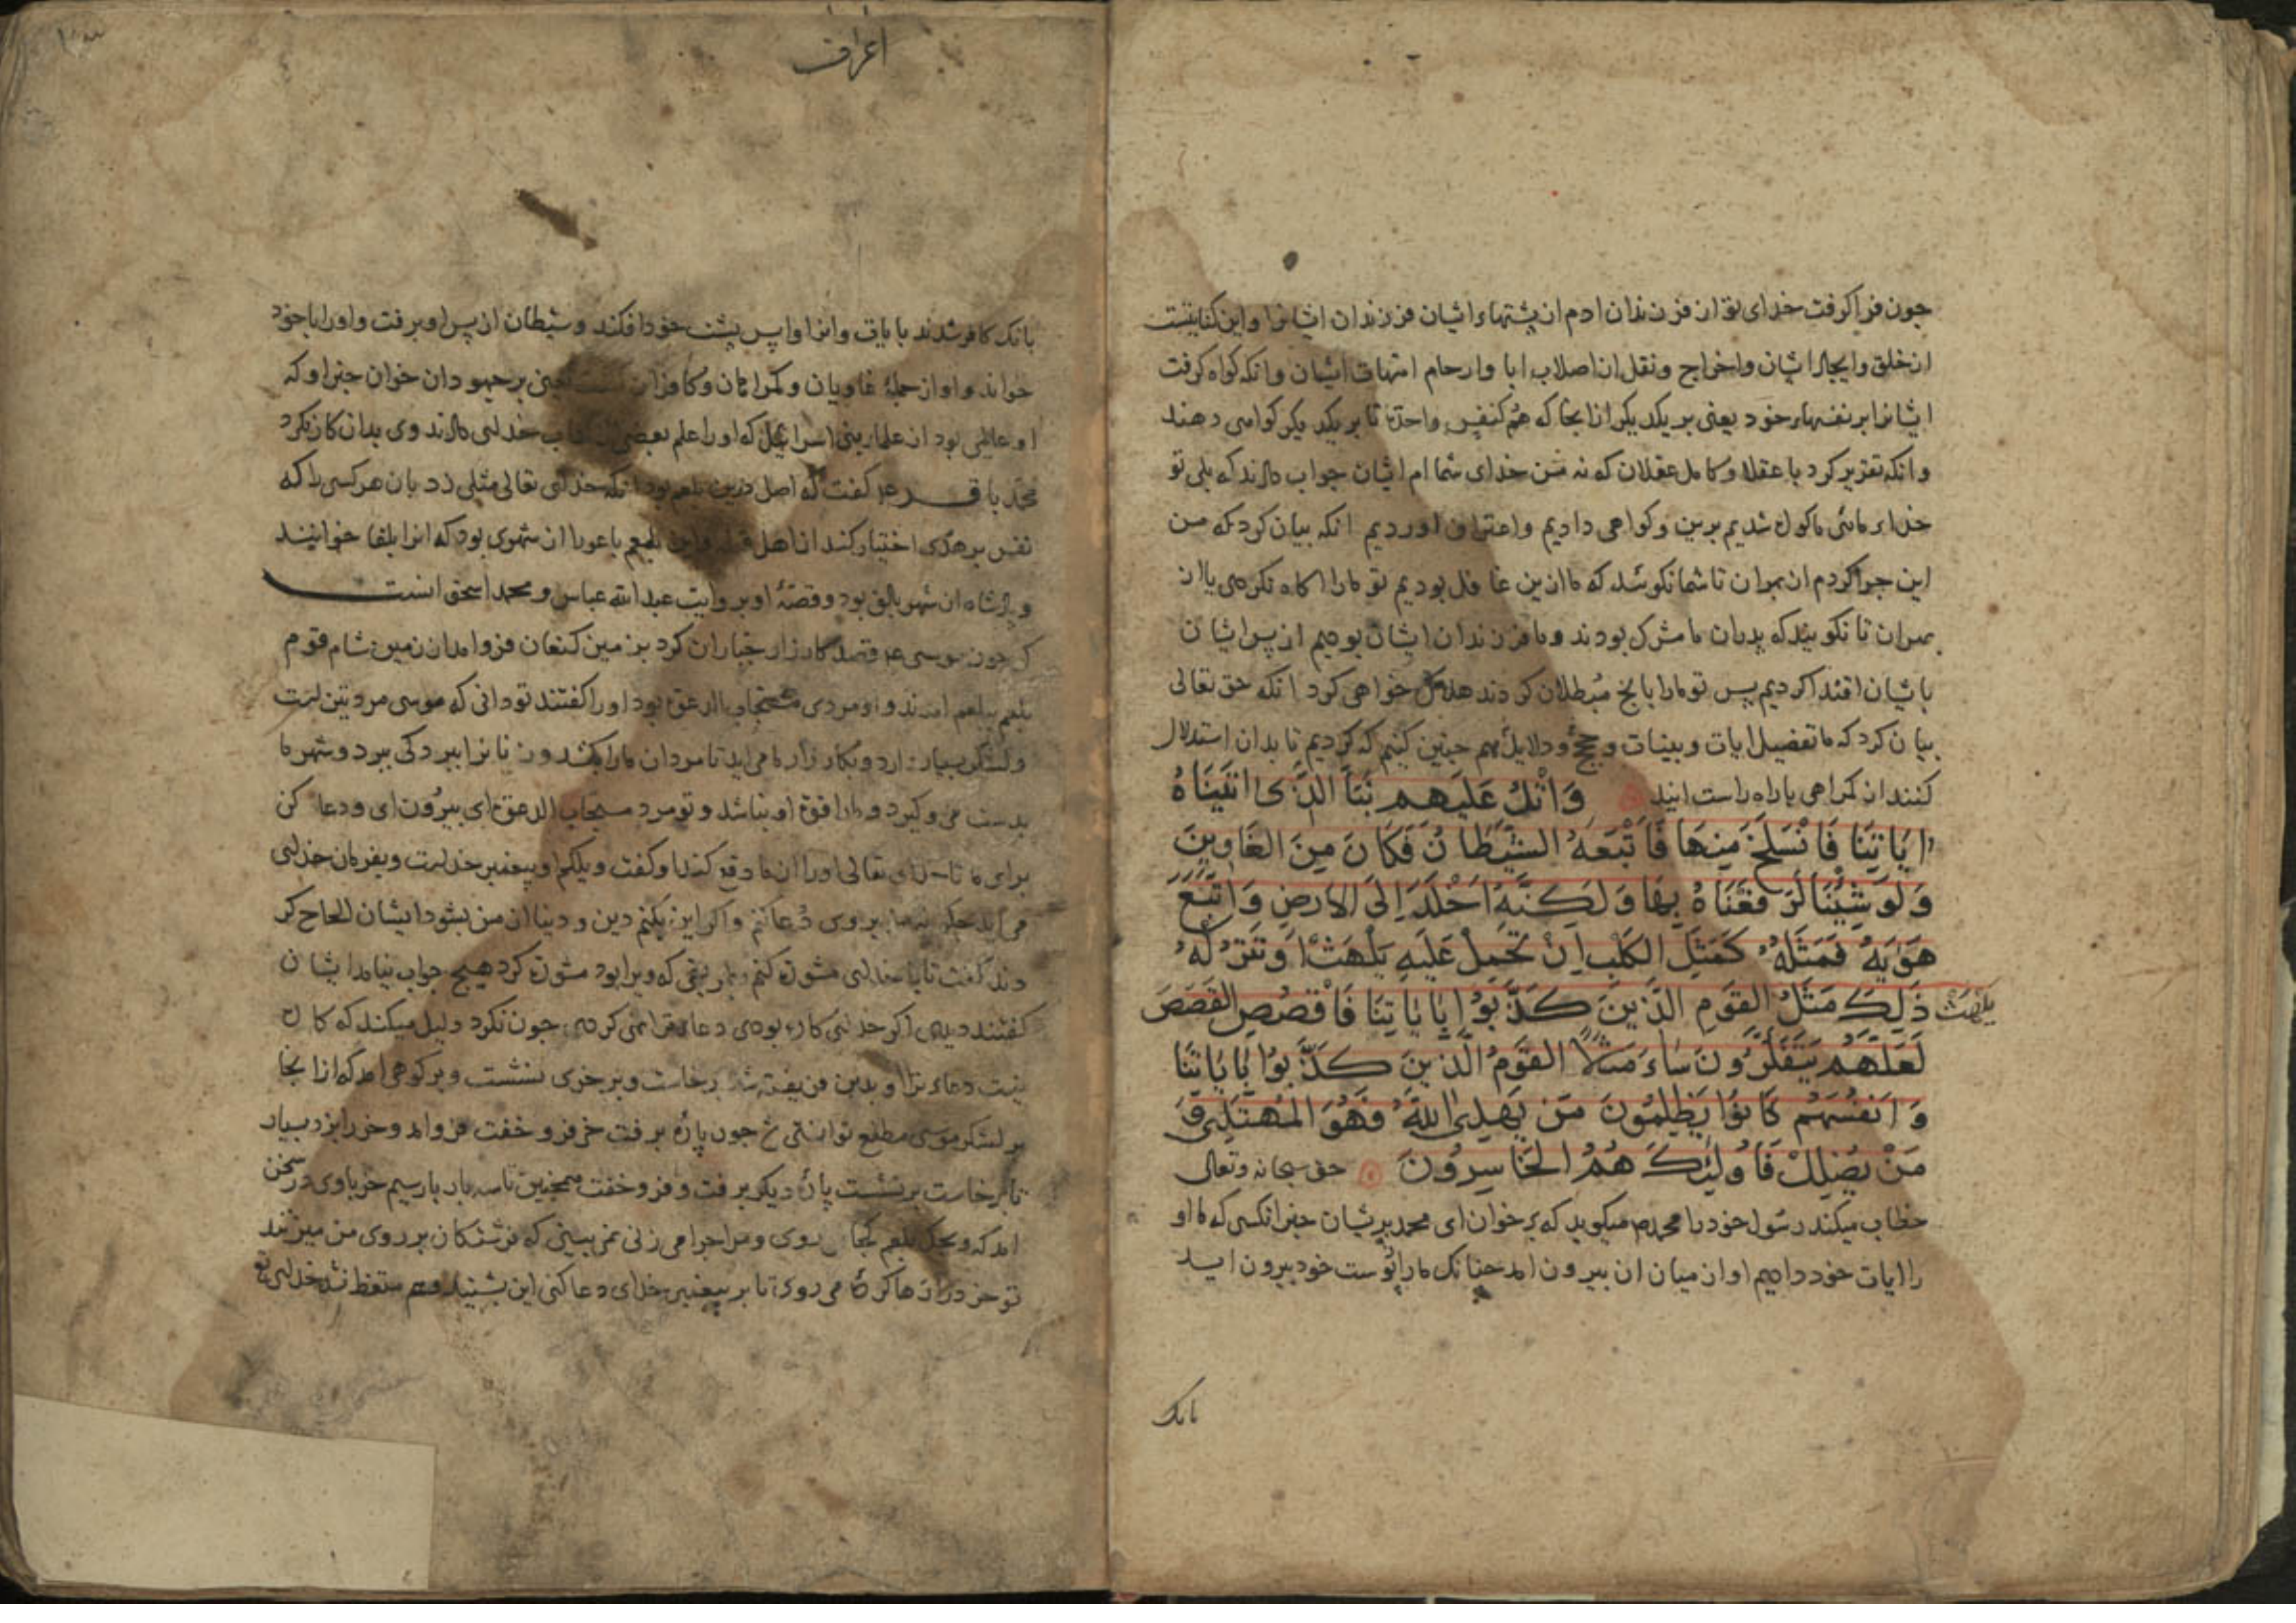 جون فراکرفت خدای تع از فرزندان ادم از پشتهاء ایشان فرزندان ایشانرا واین کنایتست
از خلق وایجاد ایشان واخراج ونقل از اصلاب ابا وارحام امتهات ایشان وانکه کواه کرفت
ایشانرا بر نفسهاء خود یعنی بر یکدیکر از انجا که هم کنفس واحدة تا بر یکدیکر کواهی دهند
وانکه تقریر کرد با عقلا وکامل عقلان که نه من خدای شما ام ایشان جواب دادند که بلی تو
خداء مائی ما کواه شدیم برین وکواهی دادیم واعتراف اوردیم انکه بیان کرد که من
این جرا کردم از بهر ان تا شما نکوئید که ما ازین غافل بودیم تو ما را اکاه نکردی یا از
بهر ان تا نکوئید که پدران ما مشرک بودند وما فرزندان ایشان بودیم از پس ایشان
با یشان اقتدا کردیم پس تو ما را بانج مبطلان کردند هلاک خواهی کرد انکه حق تعالی
بیان کرد که ما تفصیل ایات وبینات وحجج ودلایل هم جنین کنیم که کردیم تا بدان استدلال
کنند از کمراهی باراه راست ایند وَاتْلُ عَلَیهِم نَبَاَ الَّذی اتَینَاهُ
ایَاتِنَا فَانْسَلَخَ مِنهَا فَاَتْبَعَهُ الشَّیطَانُ فَکَانَ مِنَ الغَاوِینَ
وَلَو شِئنَا لَرَفَعنَاهُ بِهَا وَلَکِنَّهُ اَخْلَدَ اِلَی الارضِ وَاتَّبَعَ
هَوَیهُ فَمَثَلُهُ کَمَثَلِ الکَلبِ اِنْ تَحمِلْ عَلَیهِ یَلْهَثْ اَوتَترُکهُ
یَلْهَثْ ذَلِکَ مَثَلُ القَومِ الَّذِینَ کَذَّبُوا بِایَاتِنَا فَاقْصُصِ القَصَصَ
لَعَلَّهُم یَتَفَکَّرُونَ سَاءَ مَثَلاً القَومُ الَّذِینَ کَذَّبُوا بِایَاتِنَا
وَاَنفُسَهُم کَانُوا یَظلِمُونَ مَن یَهدِی اللهُ فَهُوَ المُهتَدِی وَ
مَنْ یُضلِلْ فَاُولئِکَ هُمُ الخَاسِرُونَ حق سبحانه وتعالی
خطاب میکند رسول خود را محمد ص میکوید که برخوان ای محمد بر یشان خبر انکسی که ما او
را ایات خود دادیم او از میان ان بیرون امد جنانک مار از پوست خود بیرون اید
بانک
اعراف
بانک کافر شد بایات وانرا واپس پشت خود افکند وشیطان از پس او برفت واورا باخود
خواند واو از جملهٔ غاویان وکمراهان وکافران کشت یعنی بر جهودان خوان خبر او که
او عالمی بود از علماء بنی اسرائیل که اورا علم بعضی از کتاب خدای دادند وی بدان کار نکرد
محمد باقر ع کفت که اصل درین بلعم بود انکه خدای تعالی مثلی زد بان هر کسی را که
نفس بر هدی اختیار کند از اهل قبله واین بلعم باعورا از شهری بود که انرا بلقا خوانند
وپادشاه ان شهر بالق بود وقصهٔ او بروایت عبدالله عباس ومحمد اسحق انست
که جون موسی ع قصد کارزار جباران کرد بزمین کنعان فرو امد از زمین شام قوم
بلعم ببلعم امدند واو مردی مستجاب الدعوة بود اورا کفتند تودانی که موسی مردی تیز است
ولشکر بسیار دارد وبکارزار ما می اید تا مردان ما را بکشد وزنانرا ببردکی ببرد وشهر ما
بدست فرو کیرد وما را قوة او نباشد وتو مرد مستجاب الدعوة ای بیرون ای ودعا کن
برای ما تا خدای تعالی اورا از ما دفع کند او کفت ویلکم او پیغمبر خدایست وبفرمان خدای
می اید جکونه من بر وی دعا کنم واکر این بکنم دین ودنیا از من بشود ایشان الحاح کر
دند کفت تا با خدای مشورة کنم بطریقی که ویرا بود مشورة کرد هیچ جواب نیامد ایشان
کفتند دیدی اکر خدای کاره بودی دعاء ترا نهی کردی جون نکرد دلیل میکند که کاره
نیست دعاء ترا او بدین فریفته شد برخاست وبر خری نشست وبر کوهی امد که از انجا
بر لشکر موسی مطلع توانستی شد جون پارهٔ برفت خر فرو خفت فرو امد وخر را بزد بسیار
تا برخاست برنشست پارهٔ دیکر برفت وفرو خفت همجنین تا سه بار بار سیم خر باوی در سخن
امد که ویحک بلعم کجا می روی ومرا جرا می زنی نمی بینی که فرشتکان بر روی من میزنند
تو خر را رها کرده می روی تا بر پیغمبر خدای دعا کنی این بشنید وهم متعظ نشد خدای تع